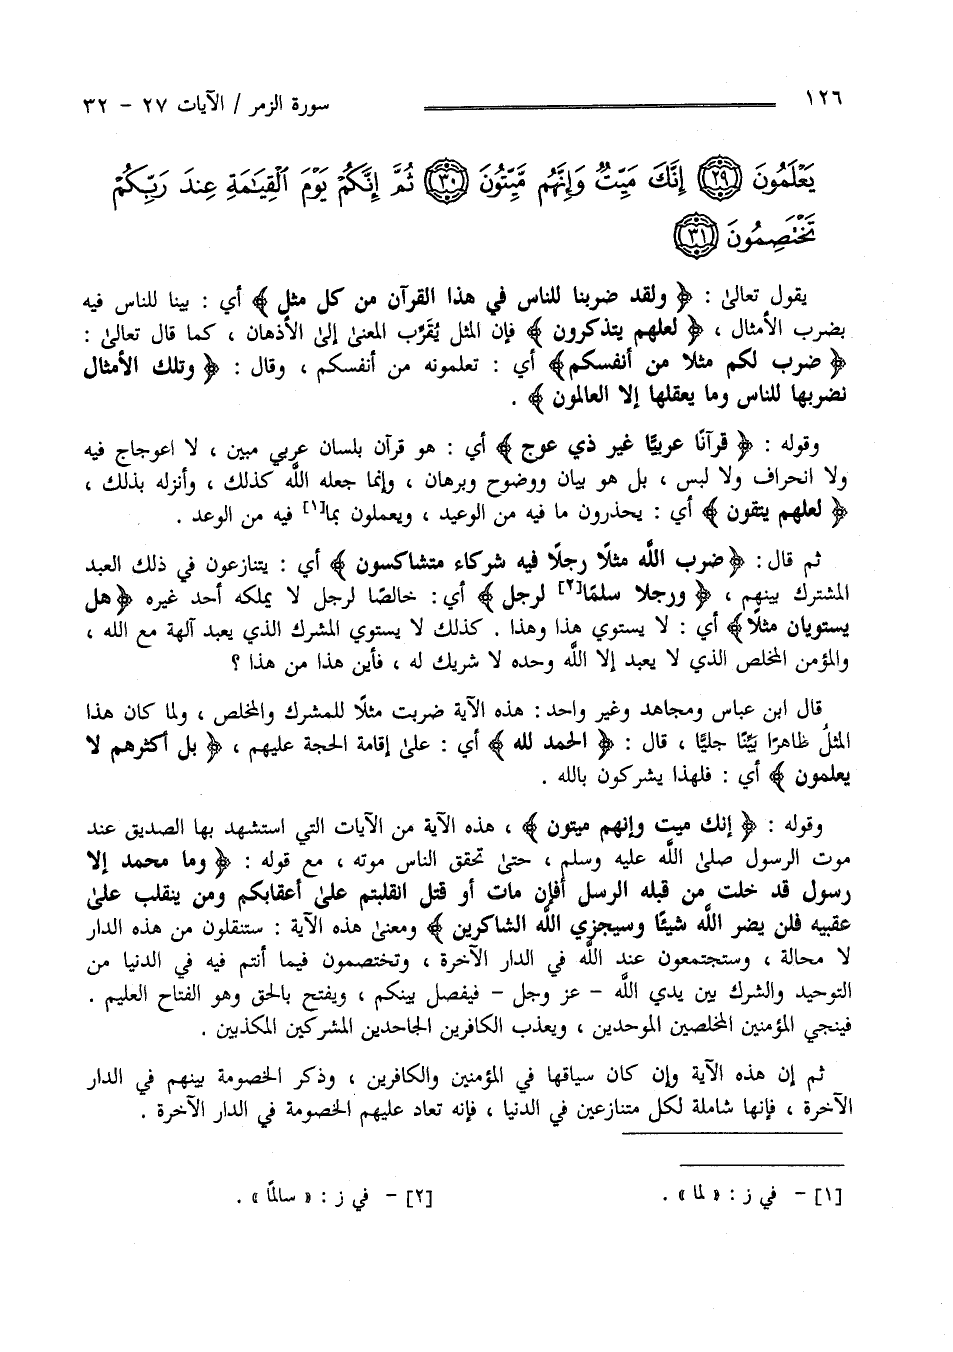 ١٢٦ سورة الزمر / الآيات ٢٧ - ٣٢
يَعْلَمُونَ ﴿٢٩﴾ إِنَّكَ مَيِّتٌ وَإِنَّهُم مَّيِّتُونَ ﴿٣٠﴾ ثُمَّ إِنَّكُمْ يَوْمَ ٱلْقِيَـٰمَةِ عِندَ رَبِّكُمْ
تَخْتَصِمُونَ ﴿٣١﴾
يقول تعالىٰ : ﴿ ولقد ضربنا للناس في هذا القرآن من كل مثل ﴾ أي : بينا للناس فيه
بضرب الأمثال ، ﴿ لعلهم يتذكرون ﴾ فإن المثل يُقَرِّب المعنىٰ إلىٰ الأذهان ، كما قال تعالىٰ :
﴿ ضرب لكم مثلا من أنفسكم﴾ أي : تعلمونه من أنفسكم ، وقال : ﴿ وتلك الأمثال
نضربها للناس وما يعقلها إلا العالمون ﴾ .
وقوله : ﴿ قرآنًا عربيًّا غير ذي عوج ﴾ أي : هو قرآن بلسان عربي مبين ، لا اعوجاج فيه
ولا انحراف ولا لبس ، بل هو بيان ووضوح وبرهان ، وإنما جعله اللَّه كذلك ، وأنزله بذلك ،
﴿ لعلهم يتقون ﴾ أي : يحذرون ما فيه من الوعيد ، ويعملون بما[١] فيه من الوعد .
ثم قال : ﴿ ضرب اللَّه مثلًا رجلًا فيه شركاء متشاكسون ﴾ أي : يتنازعون في ذلك العبد
المشترك بينهم ، ﴿ ورجلا سلمًا[٢] لرجل ﴾ أي: خالصًا لرجل لا يملكه أحد غيره ﴿هل
يستويان مثلًا﴾ أي : لا يستوي هذا وهذا . كذلك لا يستوي المشرك الذي يعبد آلهة مع الله ،
والمؤمن المخلص الذي لا يعبد إلا اللَّه وحده لا شريك له ، فأين هذا من هذا ؟
قال ابن عباس ومجاهد وغير واحد: هذه الآية ضربت مثلًا للمشرك والمخلص ، ولما كان هذا
المثلُ ظاهرًا بَيِّنًا جليًّا ، قال : ﴿ الحمد لله ﴾ أي : علىٰ إقامة الحجة عليهم ، ﴿ بل أكثرهم لا
يعلمون ﴾ أي : فلهذا يشركون بالله .
وقوله : ﴿ إنك ميت وإنهم ميتون ﴾ ، هذه الآية من الآيات التي استشهد بها الصديق عند
موت الرسول صلىٰ اللَّه عليه وسلم ، حتىٰ تحقق الناس موته ، مع قوله : ﴿ وما محمد إلا
رسول قد خلت من قبله الرسل أفإن مات أو قتل انقلبتم علىٰ أعقابكم ومن ينقلب علىٰ
عقبيه فلن يضر اللَّه شيئًا وسيجزي اللَّه الشاكرين ﴾ ومعنىٰ هذه الآية : ستنقلون من هذه الدار
لا محالة ، وستجتمعون عند اللَّه في الدار الآخرة ، وتختصمون فيما أنتم فيه في الدنيا من
التوحيد والشرك بين يدي اللَّه - عز وجل - فيفصل بينكم ، ويفتح بالحق وهو الفتاح العليم .
فينجي المؤمنين المخلصين الموحدين ، ويعذب الكافرين الجاحدين المشركين المكذبين .
ثم إن هذه الآية وإن كان سياقها في المؤمنين والكافرين ، وذكر الخصومة بينهم في الدار
الآخرة ، فإنها شاملة لكل متنازعين في الدنيا ، فإنه تعاد عليهم الخصومة في الدار الآخرة .
[١] - في ز : « لما » . [٢] - في ز : « سالمًا» .